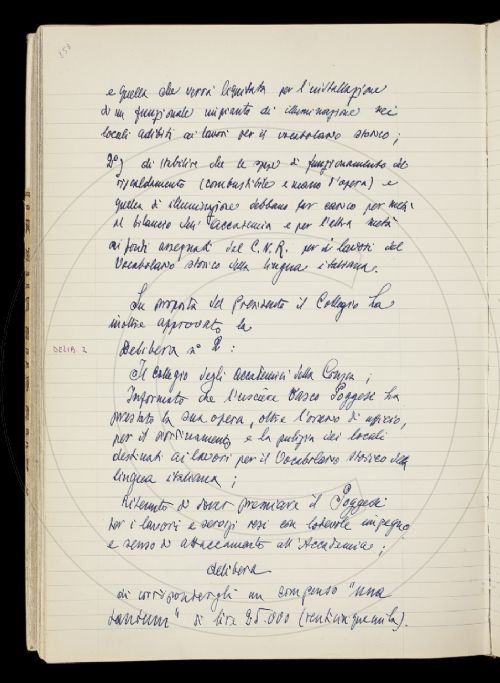 e quella che verrà liquidata per l'installazione
di un funzionale impianto di illuminazione nei
locali adibiti ai lavori per il vocabolario storico;
2º) di stabilire che le spese di funzionamento del
riscaldamento (combustibile e mano d'opera) e
quella di illuminazione debbano far carico per metà
al bilancio dell'Accademia e per l'altra metà
ai fondi assegnati dal C.N.R. per i lavori del
Vocabolario storico della lingua italiana.
Su proposta del Presidente il Collegio ha
inoltre approvato la
DELIB. 2
Delibera n° 2:
Il Collegio degli Accademici della Crusca;
Informato che l'usciere Vasco Poggesi ha
prestato la sua opera, oltre l'orario di ufficio,
per il riordinamento e la pulizia dei locali
destinati ai lavori per il Vocabolario storico della
lingua italiana;
Ritenuto di dover premiare il Poggesi
per i lavori e servizi resi con lodevole impegno
e senso di attaccamento all'Accademia;
delibera
di corrispondergli un compenso "una
tantum" di lire 25.000 (venticinquemila).